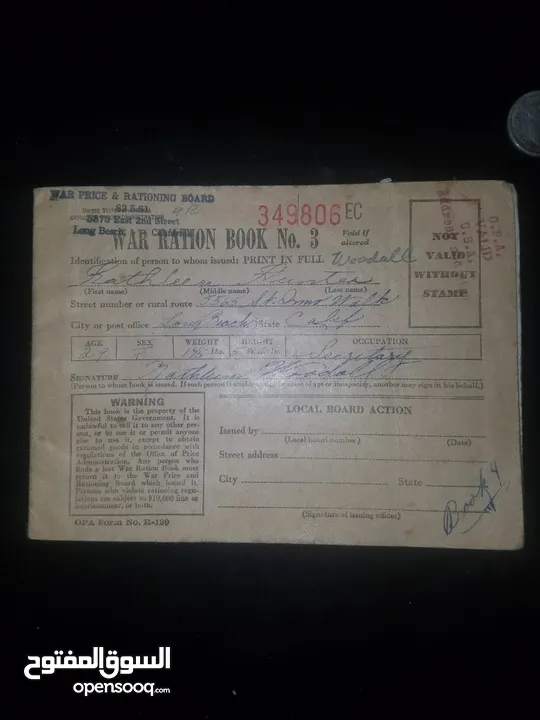 WAR PRICE & RATIONING BOARD
5373 East 2nd Street
Long Beach California
349806 EC
WAR RATION BOOK No. 3
Void if altered
Identification of person to whom issued: PRINT IN FULL Woodall
Kathleen Hunter
(First name) (Middle name) (Last name)
Street number or rural route
City or post office Long Beach State Calif
AGE SEX WEIGHT HEIGHT OCCUPATION
29 F Lbs. Secretary
SIGNATURE Kathleen Woodall
(Person to whom book is issued. If such person is unable to sign because of age or incapacity, another may sign in his behalf.)
NOT
VALID
WITHOUT
STAMP
O.P.A.
VALID
U.S.A.
WARNING
This book is the property of the
United States Government. It is
unlawful to sell it to any other per-
son, or to use it or permit anyone
else to use it, except to obtain
rationed goods in accordance with
regulations of the Office of Price
Administration. Any person who
finds a lost War Ration Book must
return it to the War Price and
Rationing Board which issued it.
Persons who violate rationing regu-
lations are subject to $10,000 fine or
imprisonment, or both.
LOCAL BOARD ACTION
Issued by
(Local board number) (Date)
Street address
City State
(Signature of issuing officer)
Book 4
OPA Form No. R-130
السوق المفتوح
opensooq.com